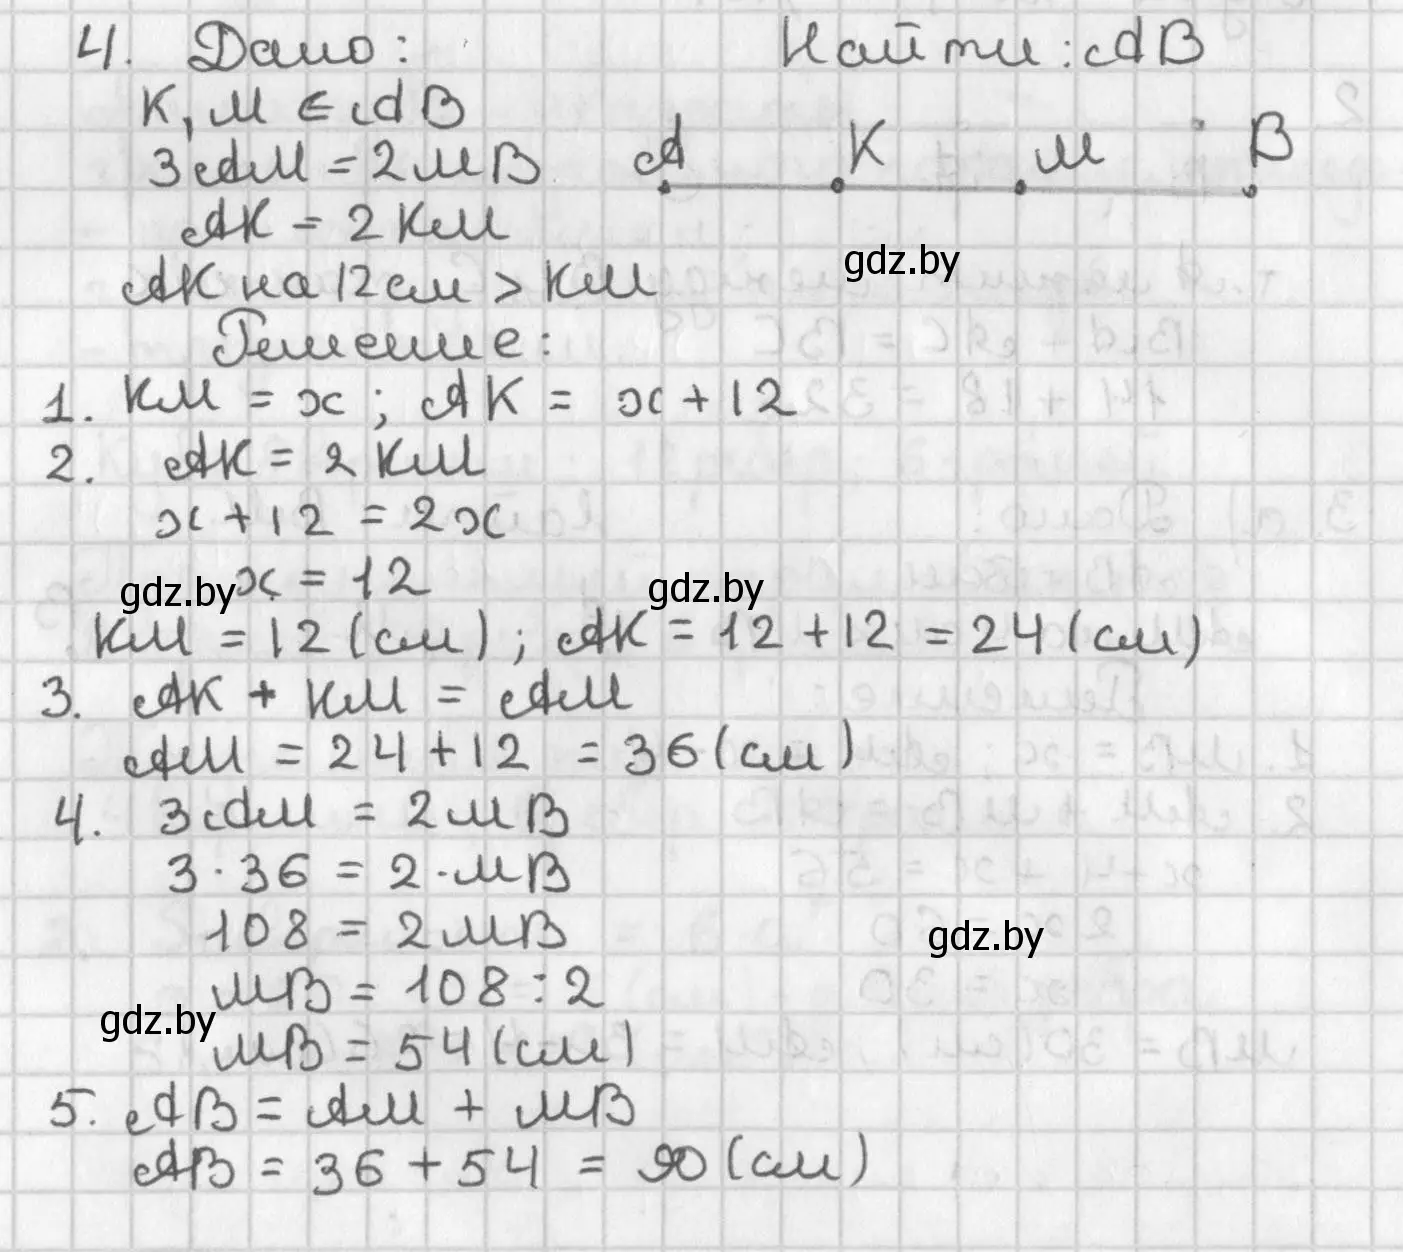 4. Дано: Найти: AB
K, M ∈ AB
3AM = 2MB
A K M B
AK = 2KM
gdz.by
AK на 12 см > KM
Решение:
1. KM = x ; AK = x + 12
2. AK = 2 KM
x + 12 = 2x
x = 12
gdz.by gdz.by
KM = 12 (см) ; AK = 12 + 12 = 24 (см)
3. AK + KM = AM
AM = 24 + 12 = 36 (см)
4. 3AM = 2MB
3 · 36 = 2 · MB
108 = 2MB
gdz.by
MB = 108 : 2
gdz.by
MB = 54 (см)
5. AB = AM + MB
AB = 36 + 54 = 90 (см)